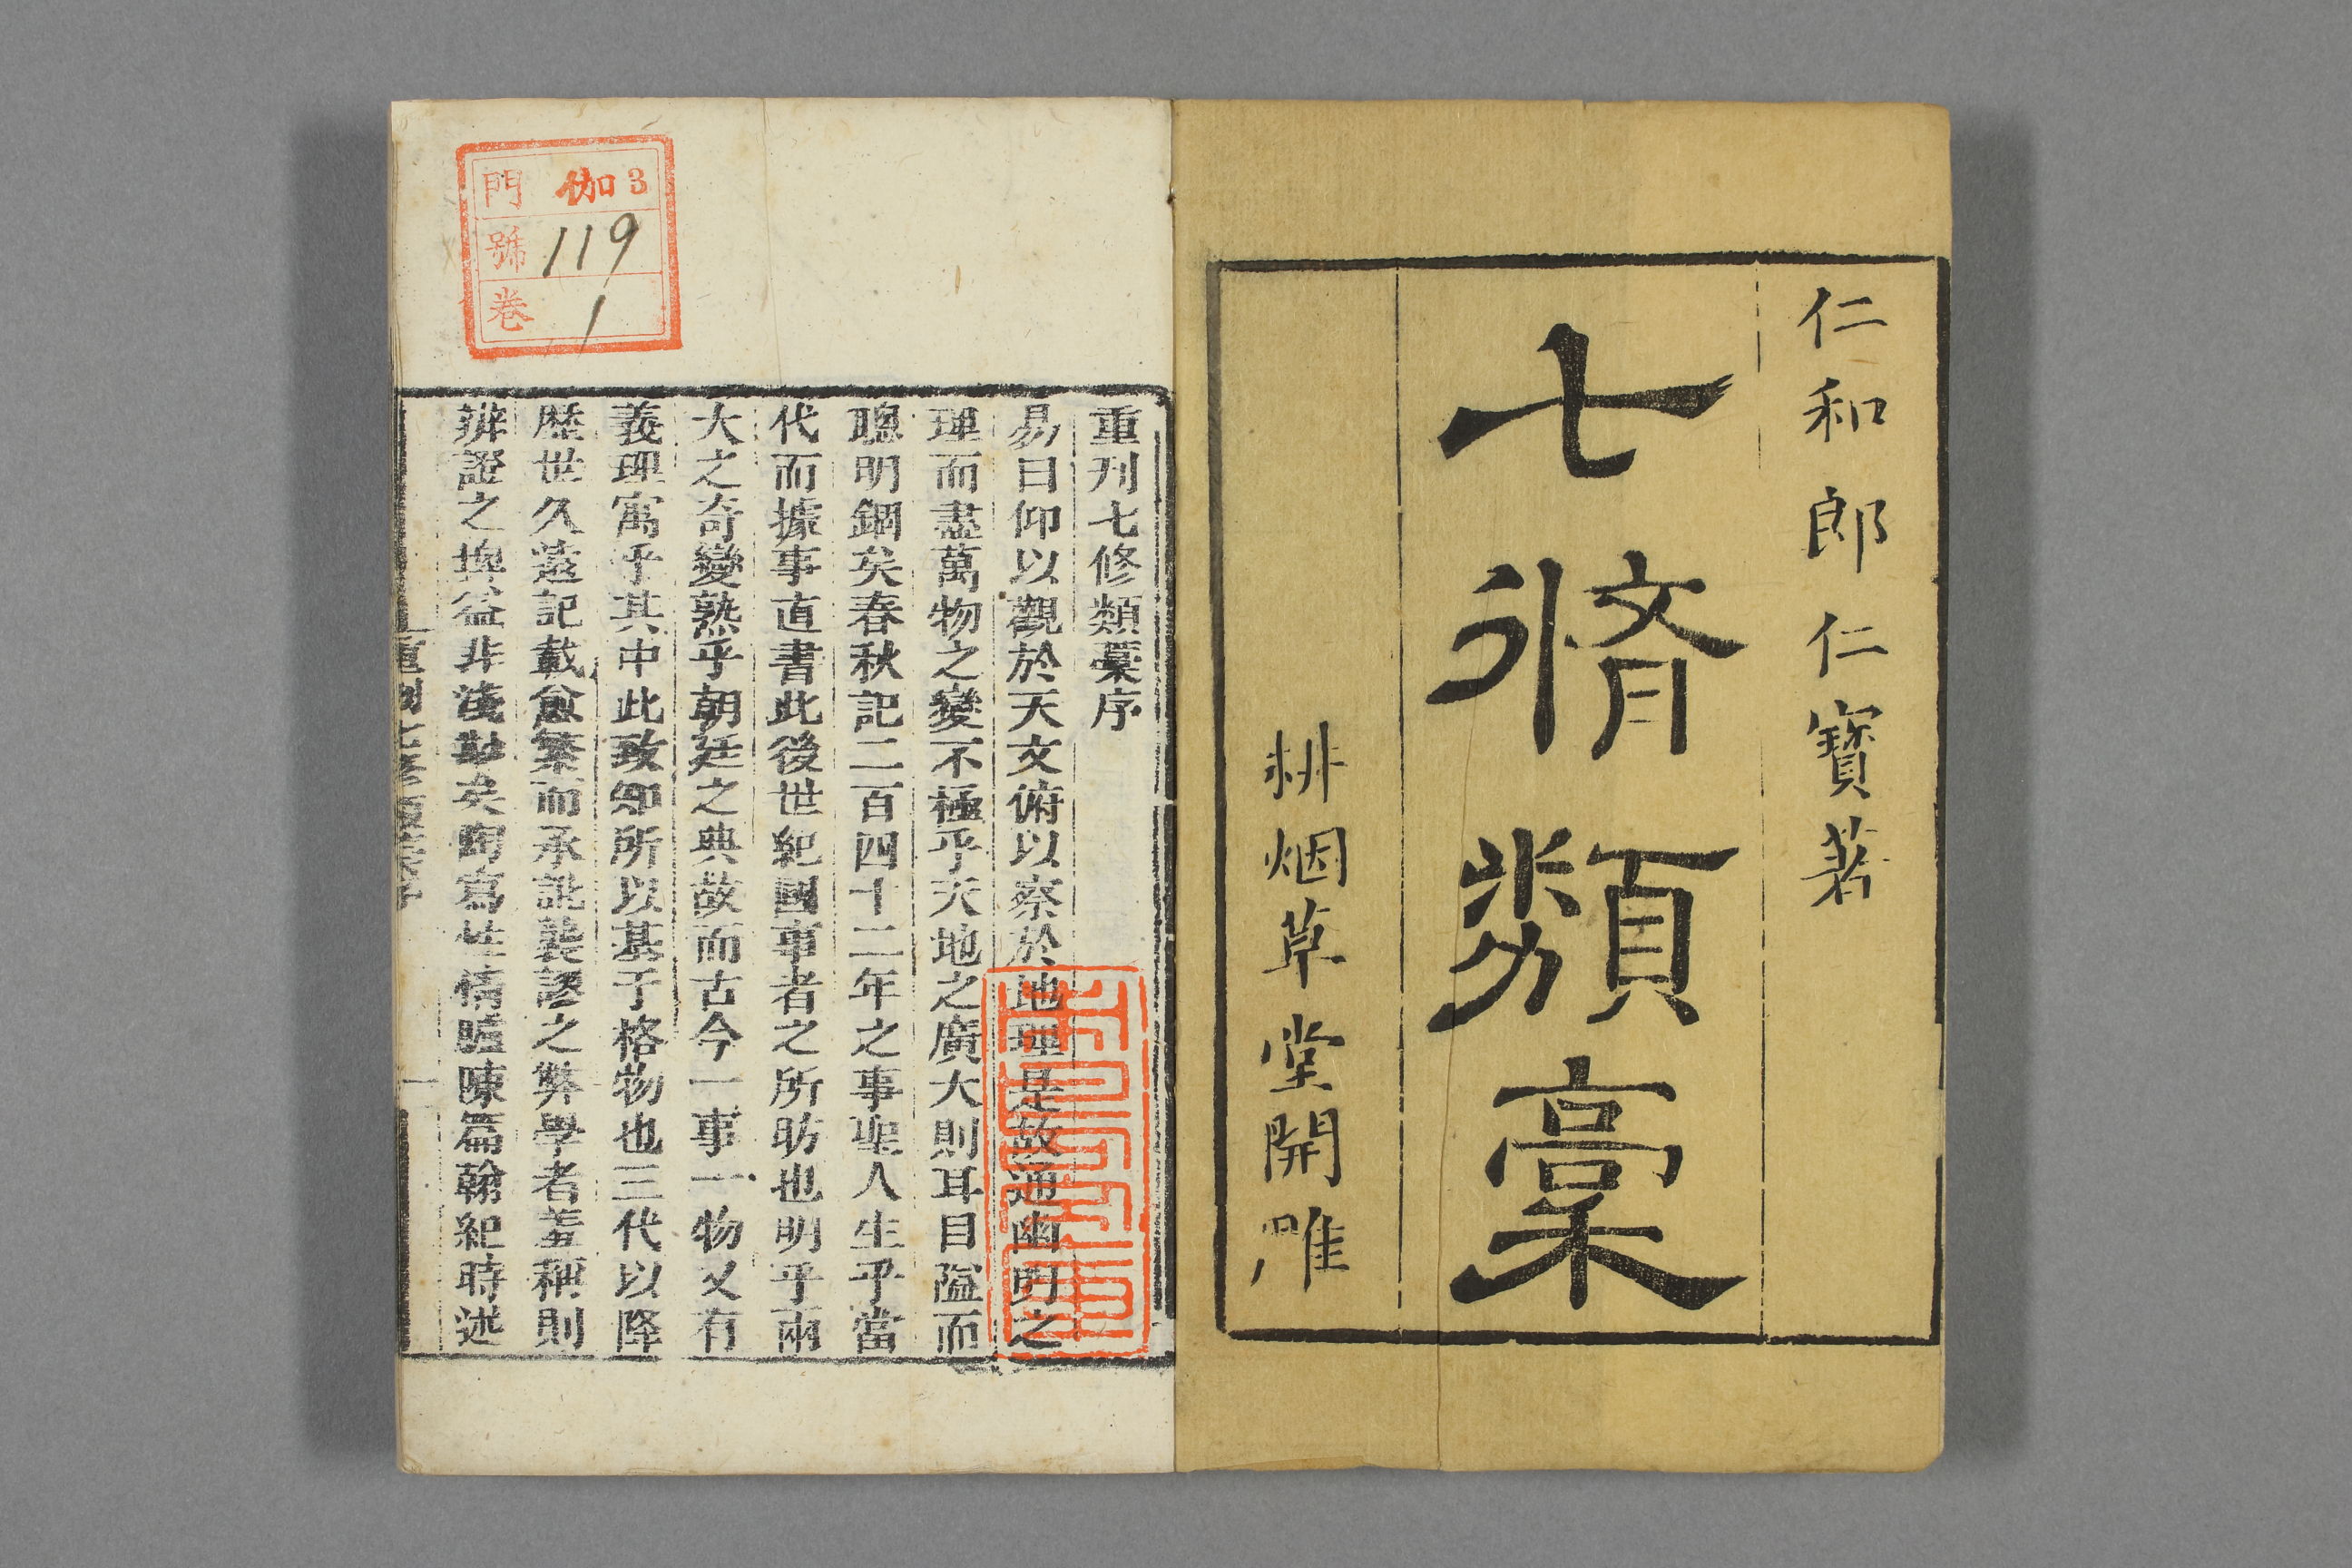 仁和郎仁寶著
七脩類稾
耕烟草堂開雕
門 伽3
號 119
卷 1
重刊七修類稾序
易曰仰以觀於天文俯以察於地理是故通幽明之
理而盡萬物之變不極乎天地之廣大則耳目隘而
聰明錮矣春秋記二百四十二年之事聖人生乎當
代而據事直書此後世紀國事者之所昉也明乎兩
大之奇變熟乎朝廷之典故而古今一事一物又有
義理寓乎其中此致知所以基于格物也三代以降
歷世久遠記載愈繁而承訛襲謬之弊學者羞稱則
辨證之埤益非淺尠矣陶寫性情臚陳篇翰紀時述